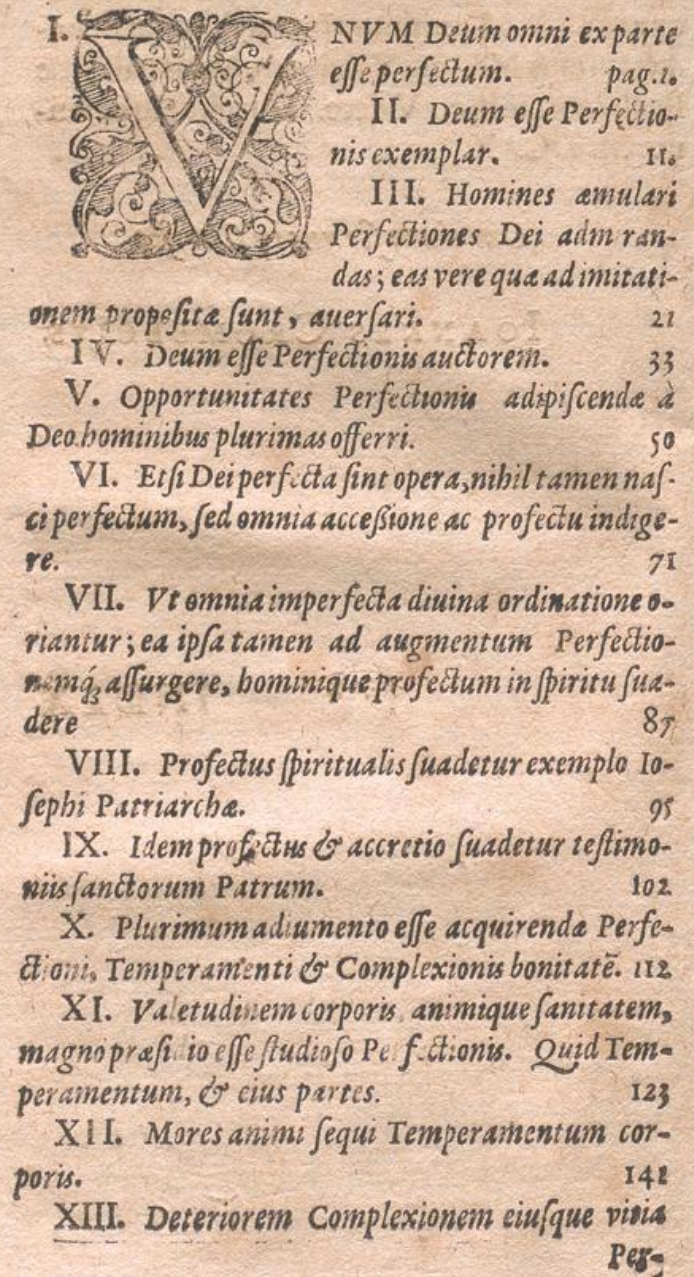 I. VNVM Deum omni ex parte
esse perfectum. pag.1.
II. Deum esse Perfectio-
nis exemplar. 11.
III. Homines æmulari
Perfectiones Dei adm ran-
das; eas vere quæ ad imitati-
onem propositæ sunt, auersari. 21
IV. Deum esse Perfectionis auctorem. 33
V. Opportunitates Perfectionis adipiscendæ à
Deo hominibus plurimas offerri. 50
VI. Etsi Dei perfecta sint opera, nihil tamen nas-
ci perfectum, sed omnia accessione ac profectu indige-
re. 71
VII. Vt omnia imperfecta diuina ordinatione o-
riantur; ea ipsa tamen ad augmentum Perfectio-
nemq́; assurgere, hominique profectum in spiritu sua-
dere 87
VIII. Profectus spiritualis suadetur exemplo Io-
sephi Patriarchæ. 95
IX. Idem profectus & accretio suadetur testimo-
niis sanctorum Patrum. 102
X. Plurimum adiumento esse acquirendæ Perfe-
ctioni, Temperamenti & Complexionis bonitatẽ. 112
XI. Valetudinem corporis animique sanitatem,
magno præsidio esse studioso Perfectionis. Quid Tem-
peramentum, & eius partes. 123
XII. Mores animi sequi Temperamentum cor-
poris. 141
XIII. Deteriorem Complexionem eiusque vitia
Per-